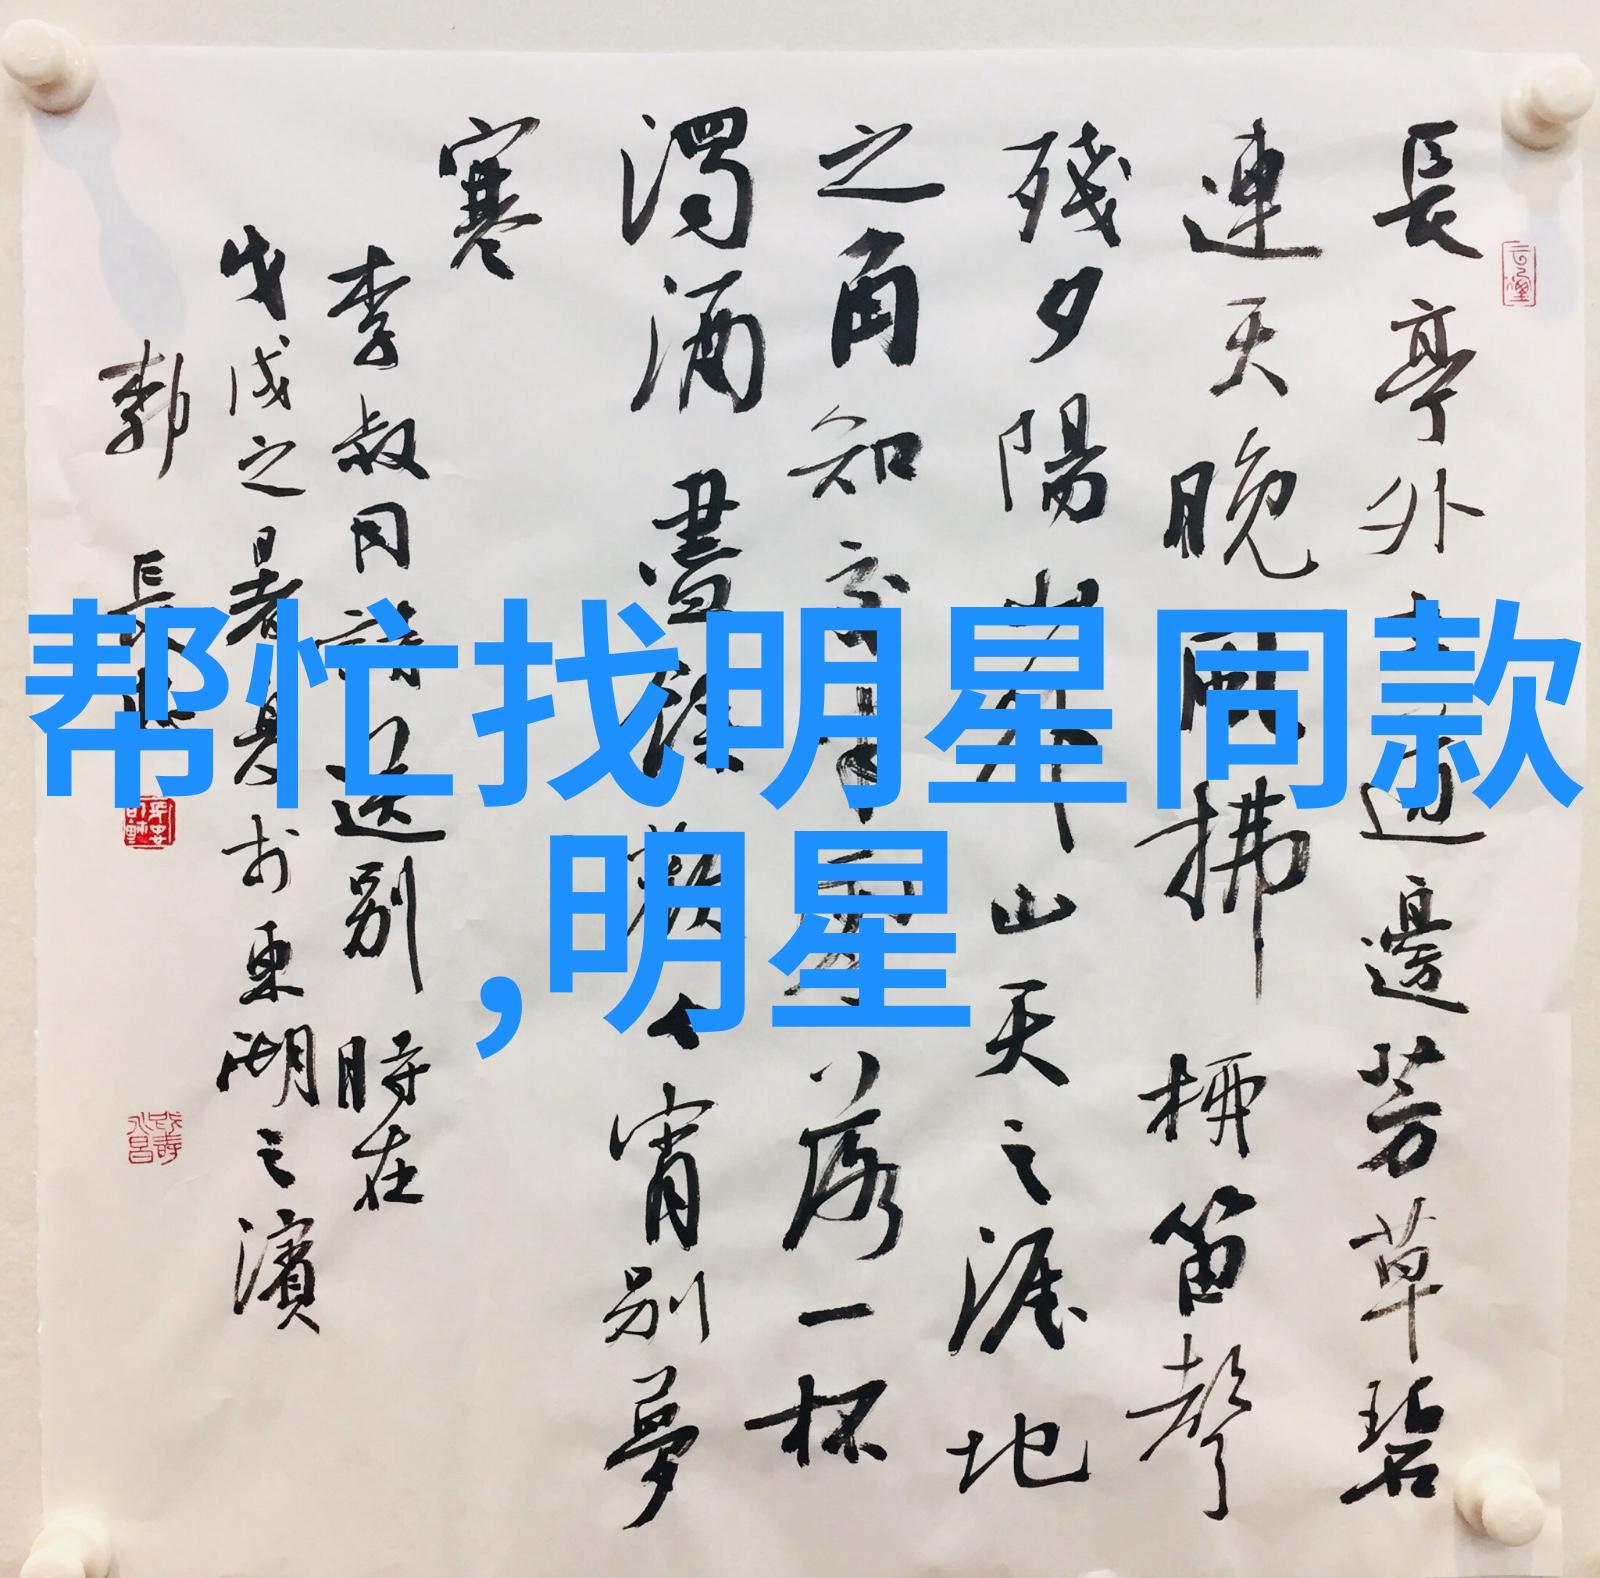 帮忙找明星同款
,明星
長亭外古道邊芳草碧
連天晚風拂柳笛聲
殘夕陽山外山天之涯地
之角知交半零落一杯
濁酒盡餘歡今宵別夢
寒
李叔同詩送別 時在
戊戌之暑於東湖之濱
長